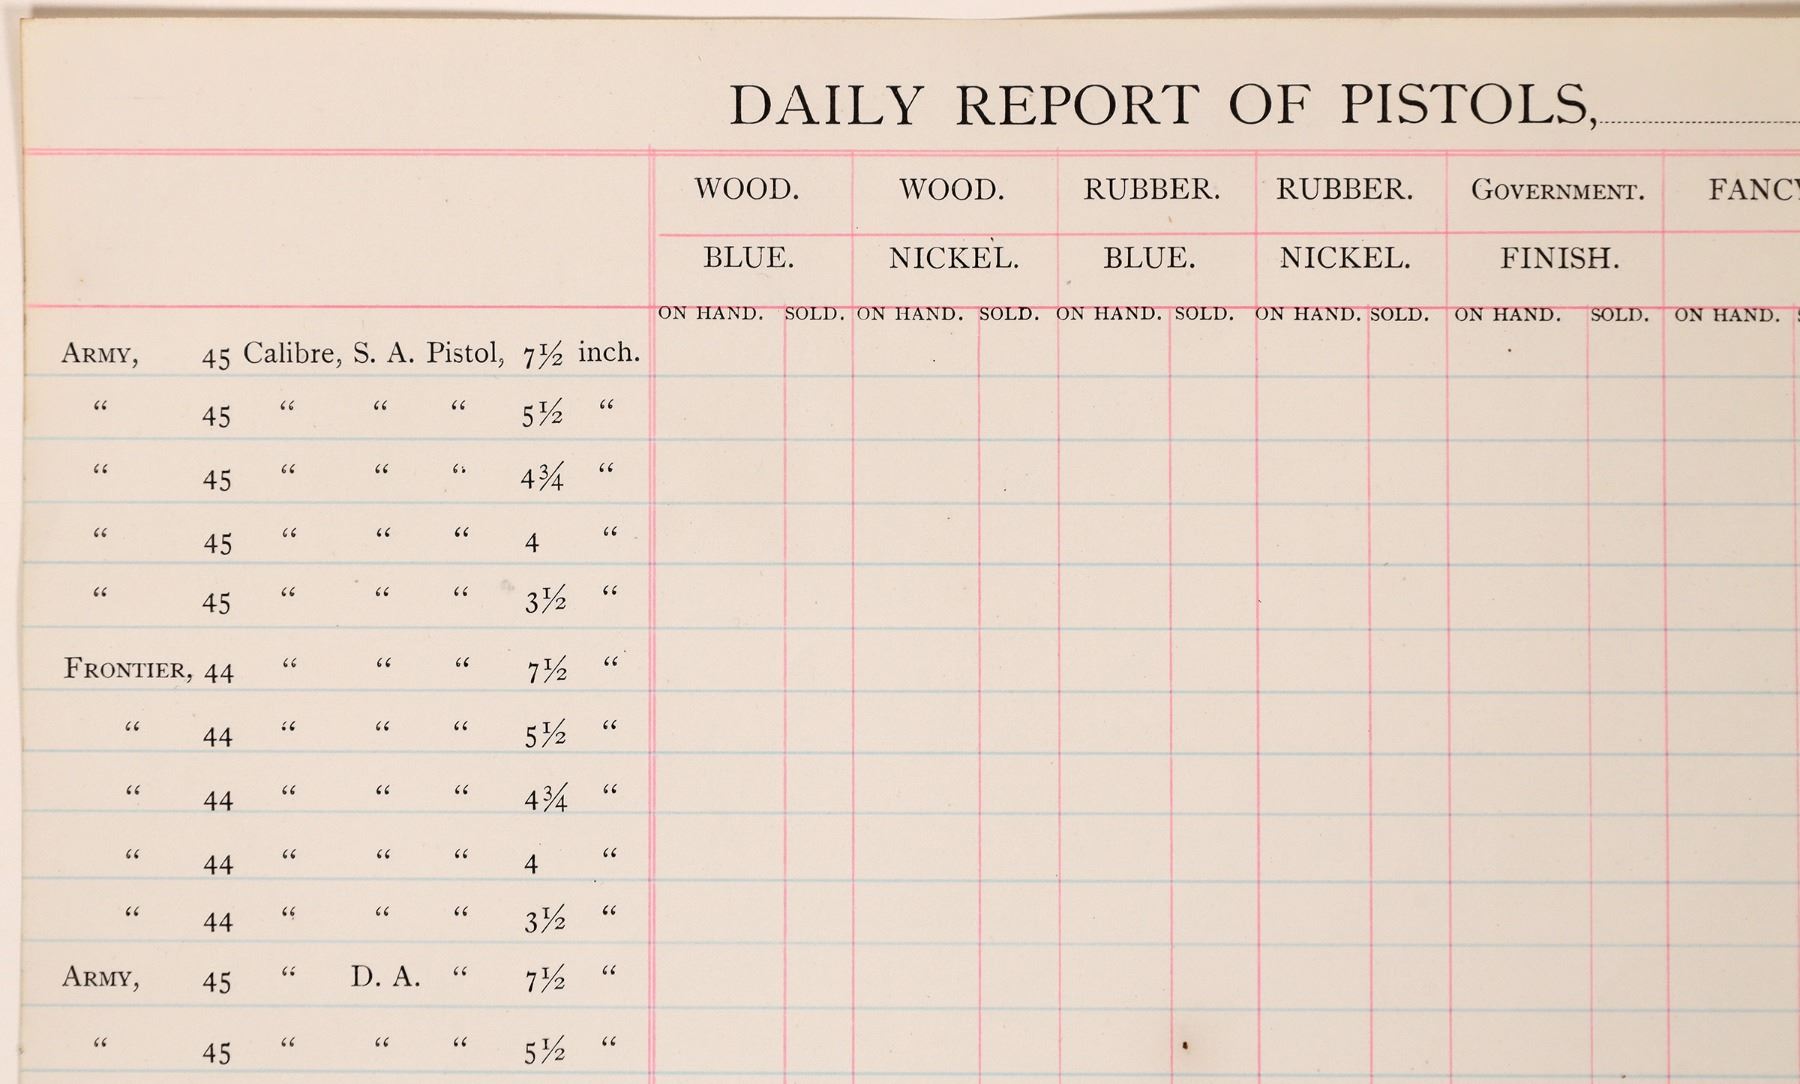 DAILY REPORT OF PISTOLS,
WOOD. WOOD. RUBBER. RUBBER. GOVERNMENT. FANCY
BLUE. NICKEL. BLUE. NICKEL. FINISH.
ON HAND. SOLD. ON HAND. SOLD. ON HAND. SOLD. ON HAND. SOLD. ON HAND. SOLD. ON HAND.
ARMY, 45 Calibre, S. A. Pistol, 7½ inch.
“ 45 “ “ “ 5½ “
“ 45 “ “ “ 4¾ “
“ 45 “ “ “ 4 “
“ 45 “ “ “ 3½ “
FRONTIER, 44 “ “ “ 7½ “
“ 44 “ “ “ 5½ “
“ 44 “ “ “ 4¾ “
“ 44 “ “ “ 4 “
“ 44 “ “ “ 3½ “
ARMY, 45 “ D. A. “ 7½ “
“ 45 “ “ “ 5½ “